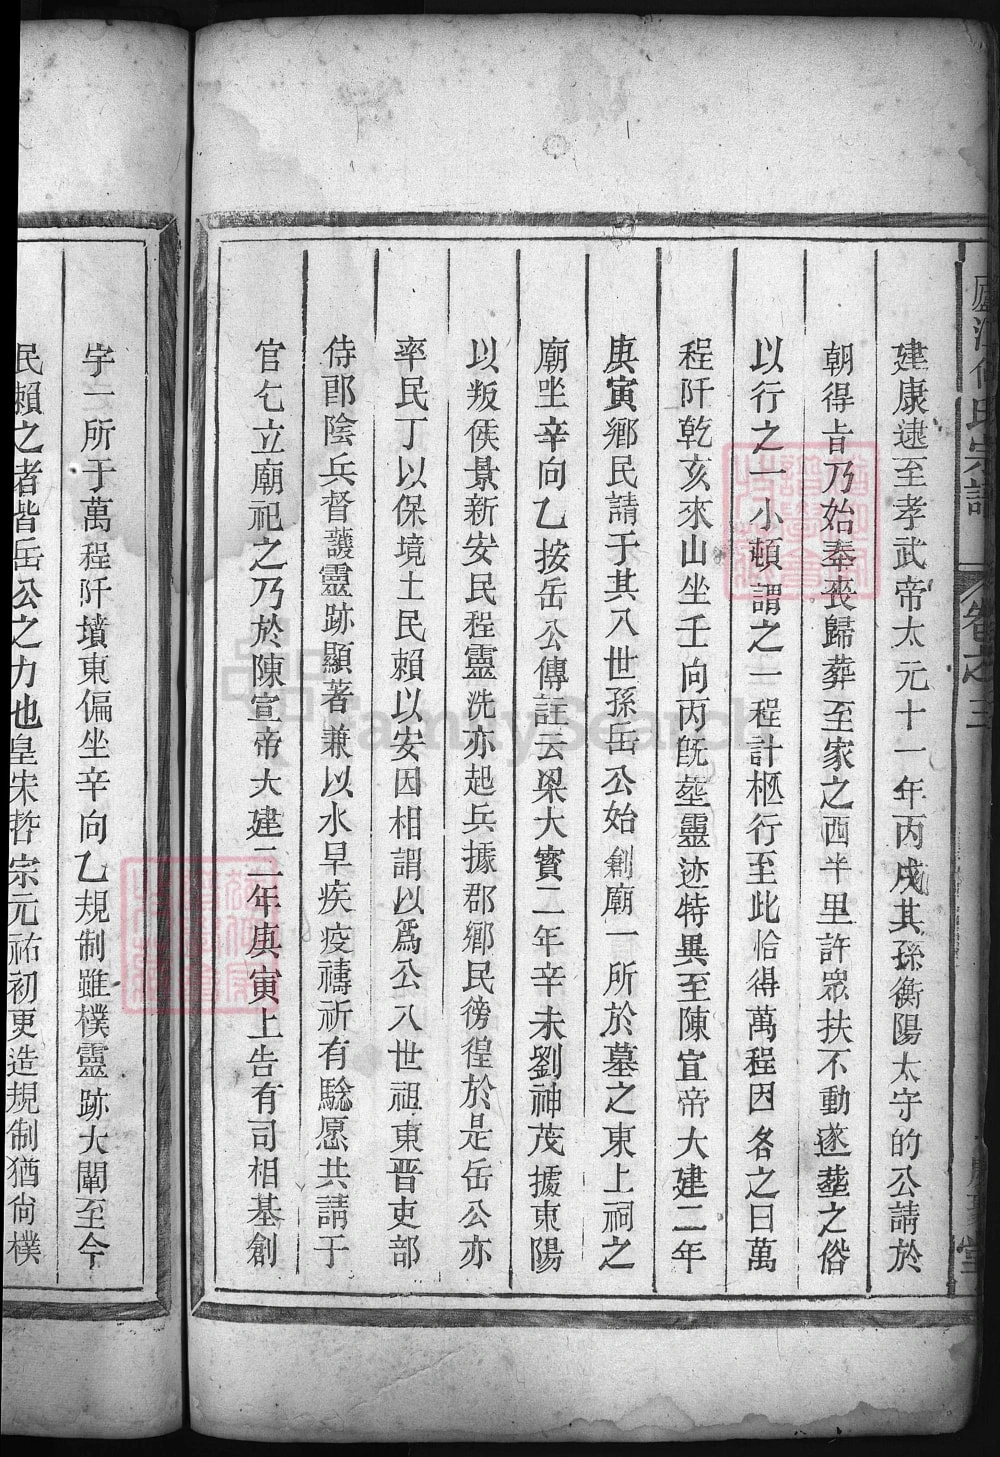 廬江何氏宗譜 卷之三
建康逮至孝武帝太元十一年丙戌其孫衡陽太守的公請於
朝得旨乃始奉喪歸葬至家之西半里許眾扶不動遂塟之俗
以行之一小頓謂之一程計柩行至此恰得萬程因名之曰萬
程阡乾亥來山坐壬向丙旣塟靈迹特異至陳宣帝大建二年
庚寅鄉民請于其八世孫岳公始創廟一所於墓之東上祠之
廟坐辛向乙按岳公傳註云梁大寶二年辛未劉神茂據東陽
以叛侯景新安民程靈洗亦起兵據郡鄉民徬徨於是岳公亦
率民丁以保境土民賴以安因相謂以爲公八世祖東晋吏部
侍郎陰兵督護靈跡顯著兼以水旱疾疫禱祈有驗愿共請于
官乞立廟祀之乃於陳宣帝大建二年庚寅上告有司相基創
宇一所于萬程阡墳東偏坐辛向乙規制雖樸靈跡大闡至今
民賴之者皆岳公之力也皇宋哲宗元祐初更造規制猶尙樸
FamilySearch